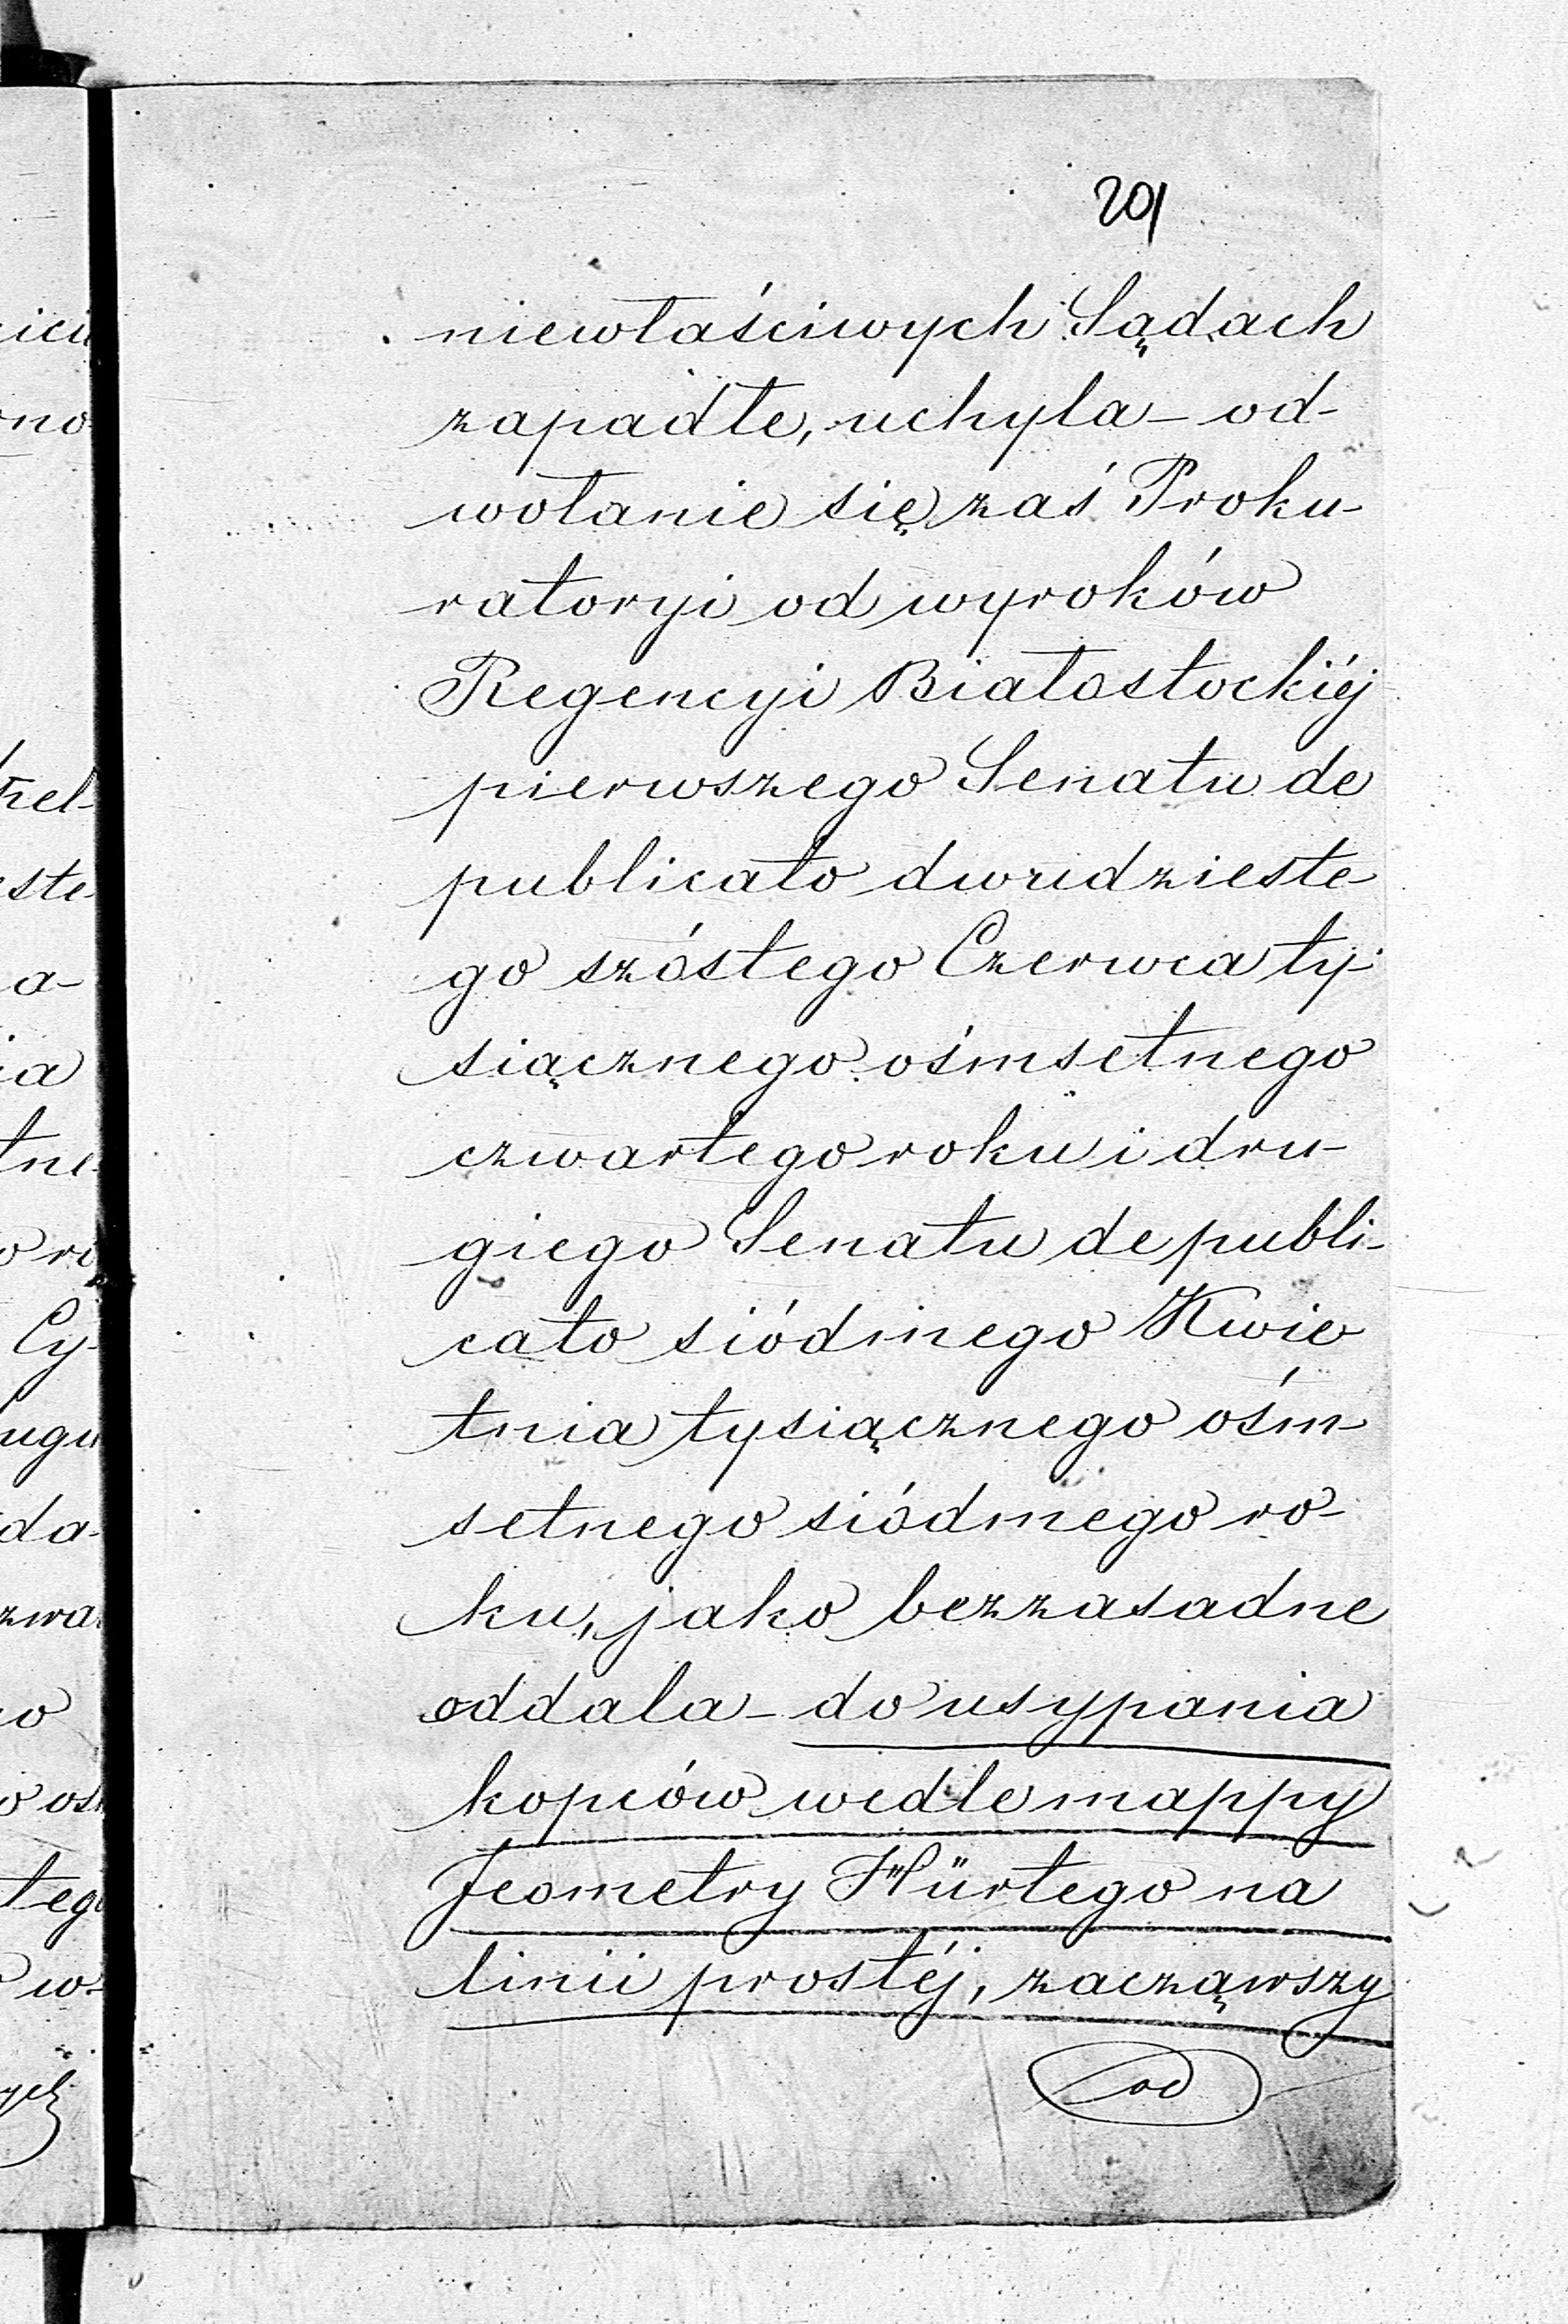 201
niewłaściwych Sądach
zapadłe, uchyla – od-
wołanie się zaś Proku-
ratoryi od wyroków
Regencyi Białostockiéj
pierwszego Senatu de
publicato dwudzieste-
go szóstego Czerwca ty-
siącznego ośmsetnego
czwartego roku i dru-
giego Senatu de publi-
cato siódmego Kwie
tnia tysiącznego ośm-
setnego siódmego ro-
ku, jako bezzasadne
oddala – do usypania
kopców wedle mappy
Jeometry Hürtego na
linii prostéj, zacząwszy
od